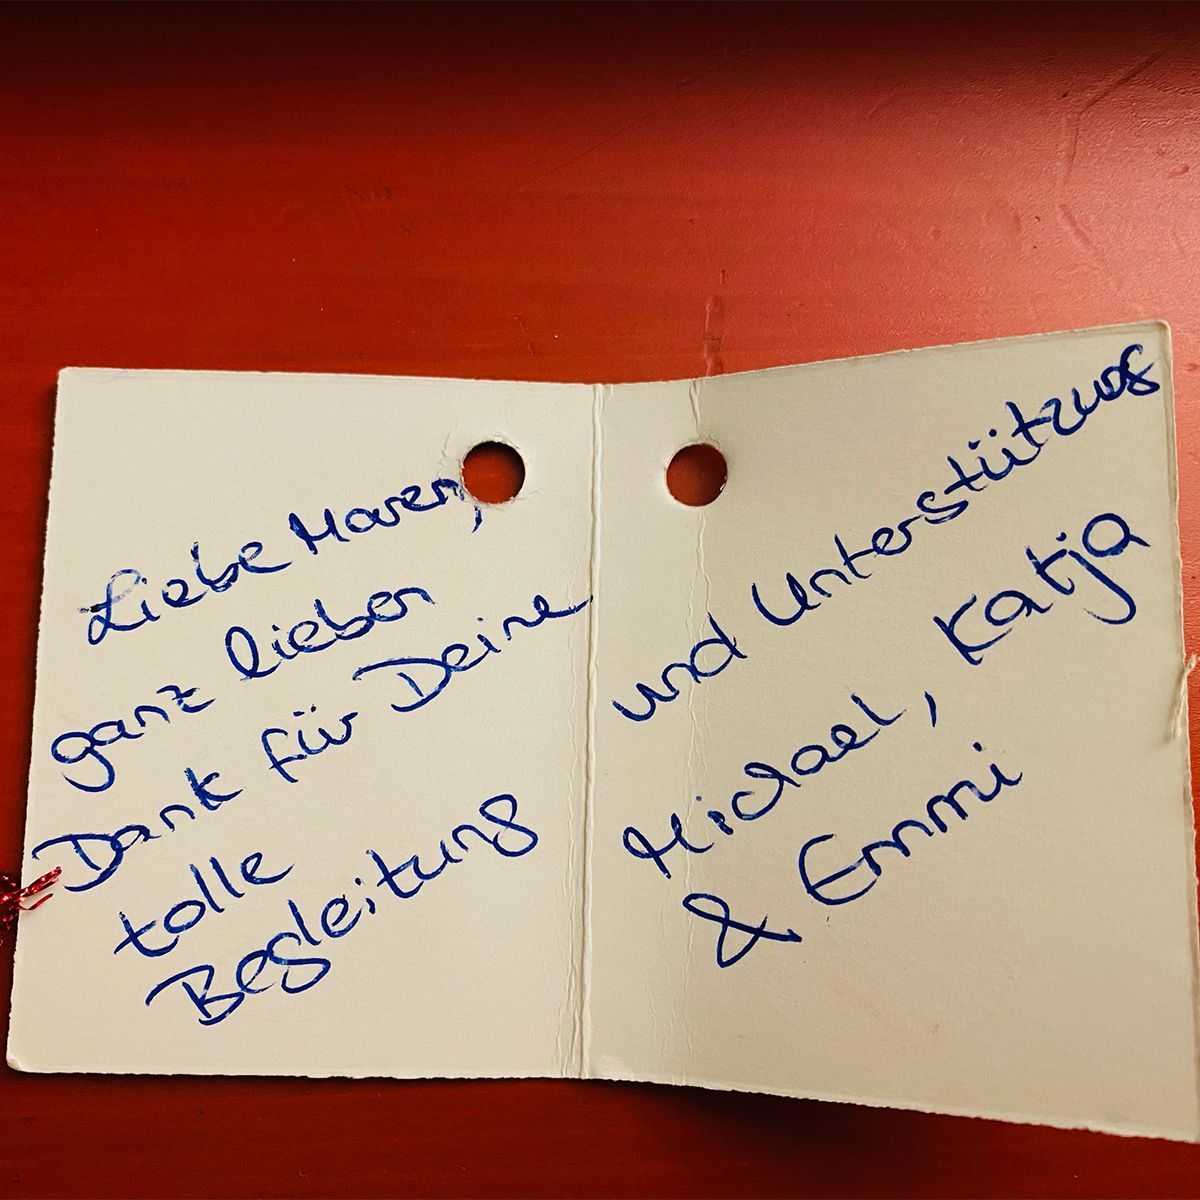 Liebe Maren,
ganz lieben
Dank für Deine
tolle
Begleitung
und Unterstützung
Michael, Katja
& Emmi